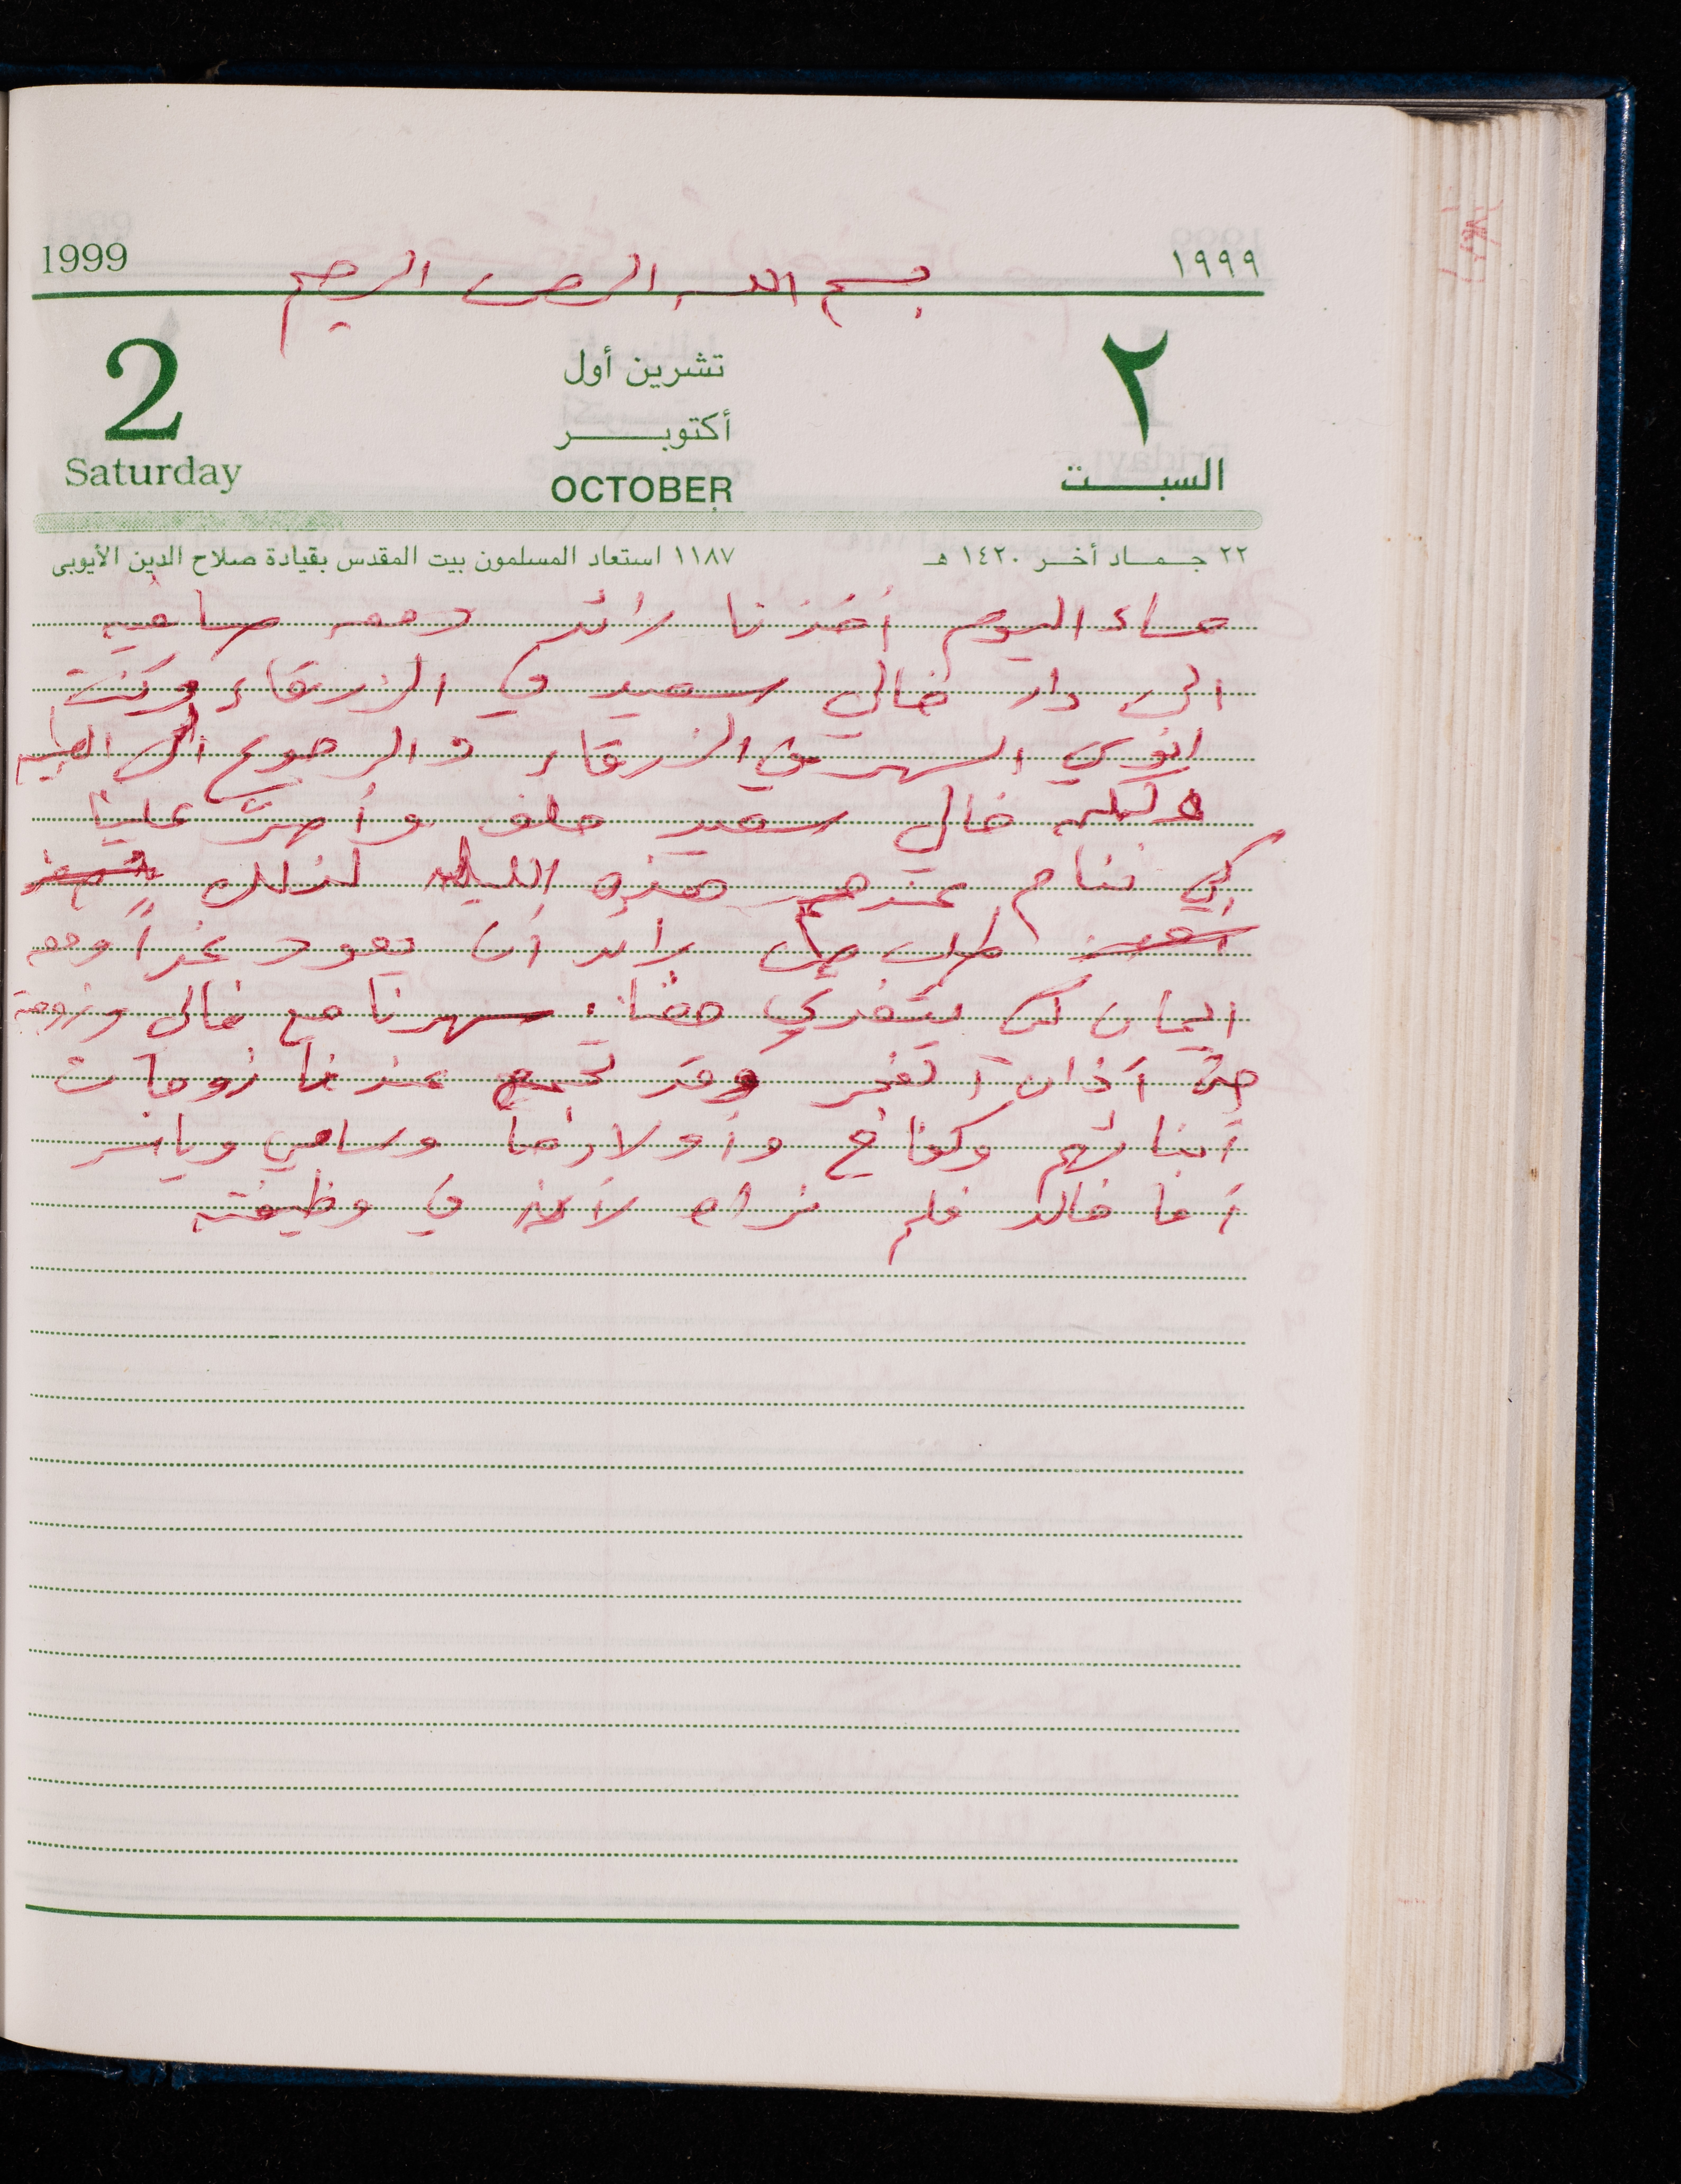 1999
١٩٩٩
بسم الله الرحمن الرحيم
2
تشرين أول
٢
أكتوبـــــــر
Saturday
OCTOBER
السبــــت
٢٢ جـمـاد أخـر ١٤٢٠ هـ
١١٨٧ استعاد المسلمون بيت المقدس بقيادة صلاح الدين الأيوبى
مساء اليوم أخذنا رائد ومعه سامية
الى دار خالي سعيد في الزرقاء وكنت
انوي السهر في الزرقاء والرجوع الى
ولكن خالي سعيد حلف وأصرَّ علينا
كي ننام عندهم هذه الليلة لذلك
طلب من رائد أن يعود غداً ومعه
ايمان كي يتغدى معنا. سهرنا مع خالي وزوجته
حتى آذان الفجر وقد تجمع عندنا زوجات
أبنائهم وكفاح وأولادها وسامي وياسر
أما خالد فلم نراه لأنه في وظيفته